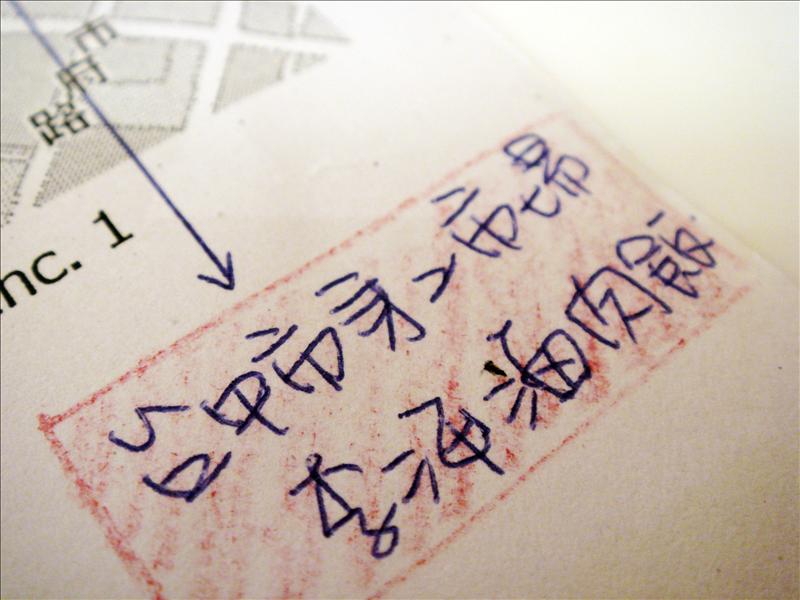 市府路
nc. 1
台中市第二市場
李海滷肉飯